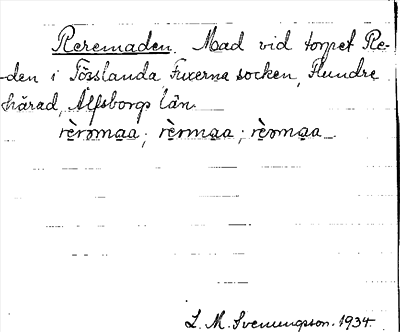 Reremaden. Mad vid torpet Re-
den i Tösslanda Fuxerna socken, Flundre
härad, Älfsborgs län.
rèrəmaa; rèrmaa; rèrmaa.
L. M. Svenungsson. 1934.